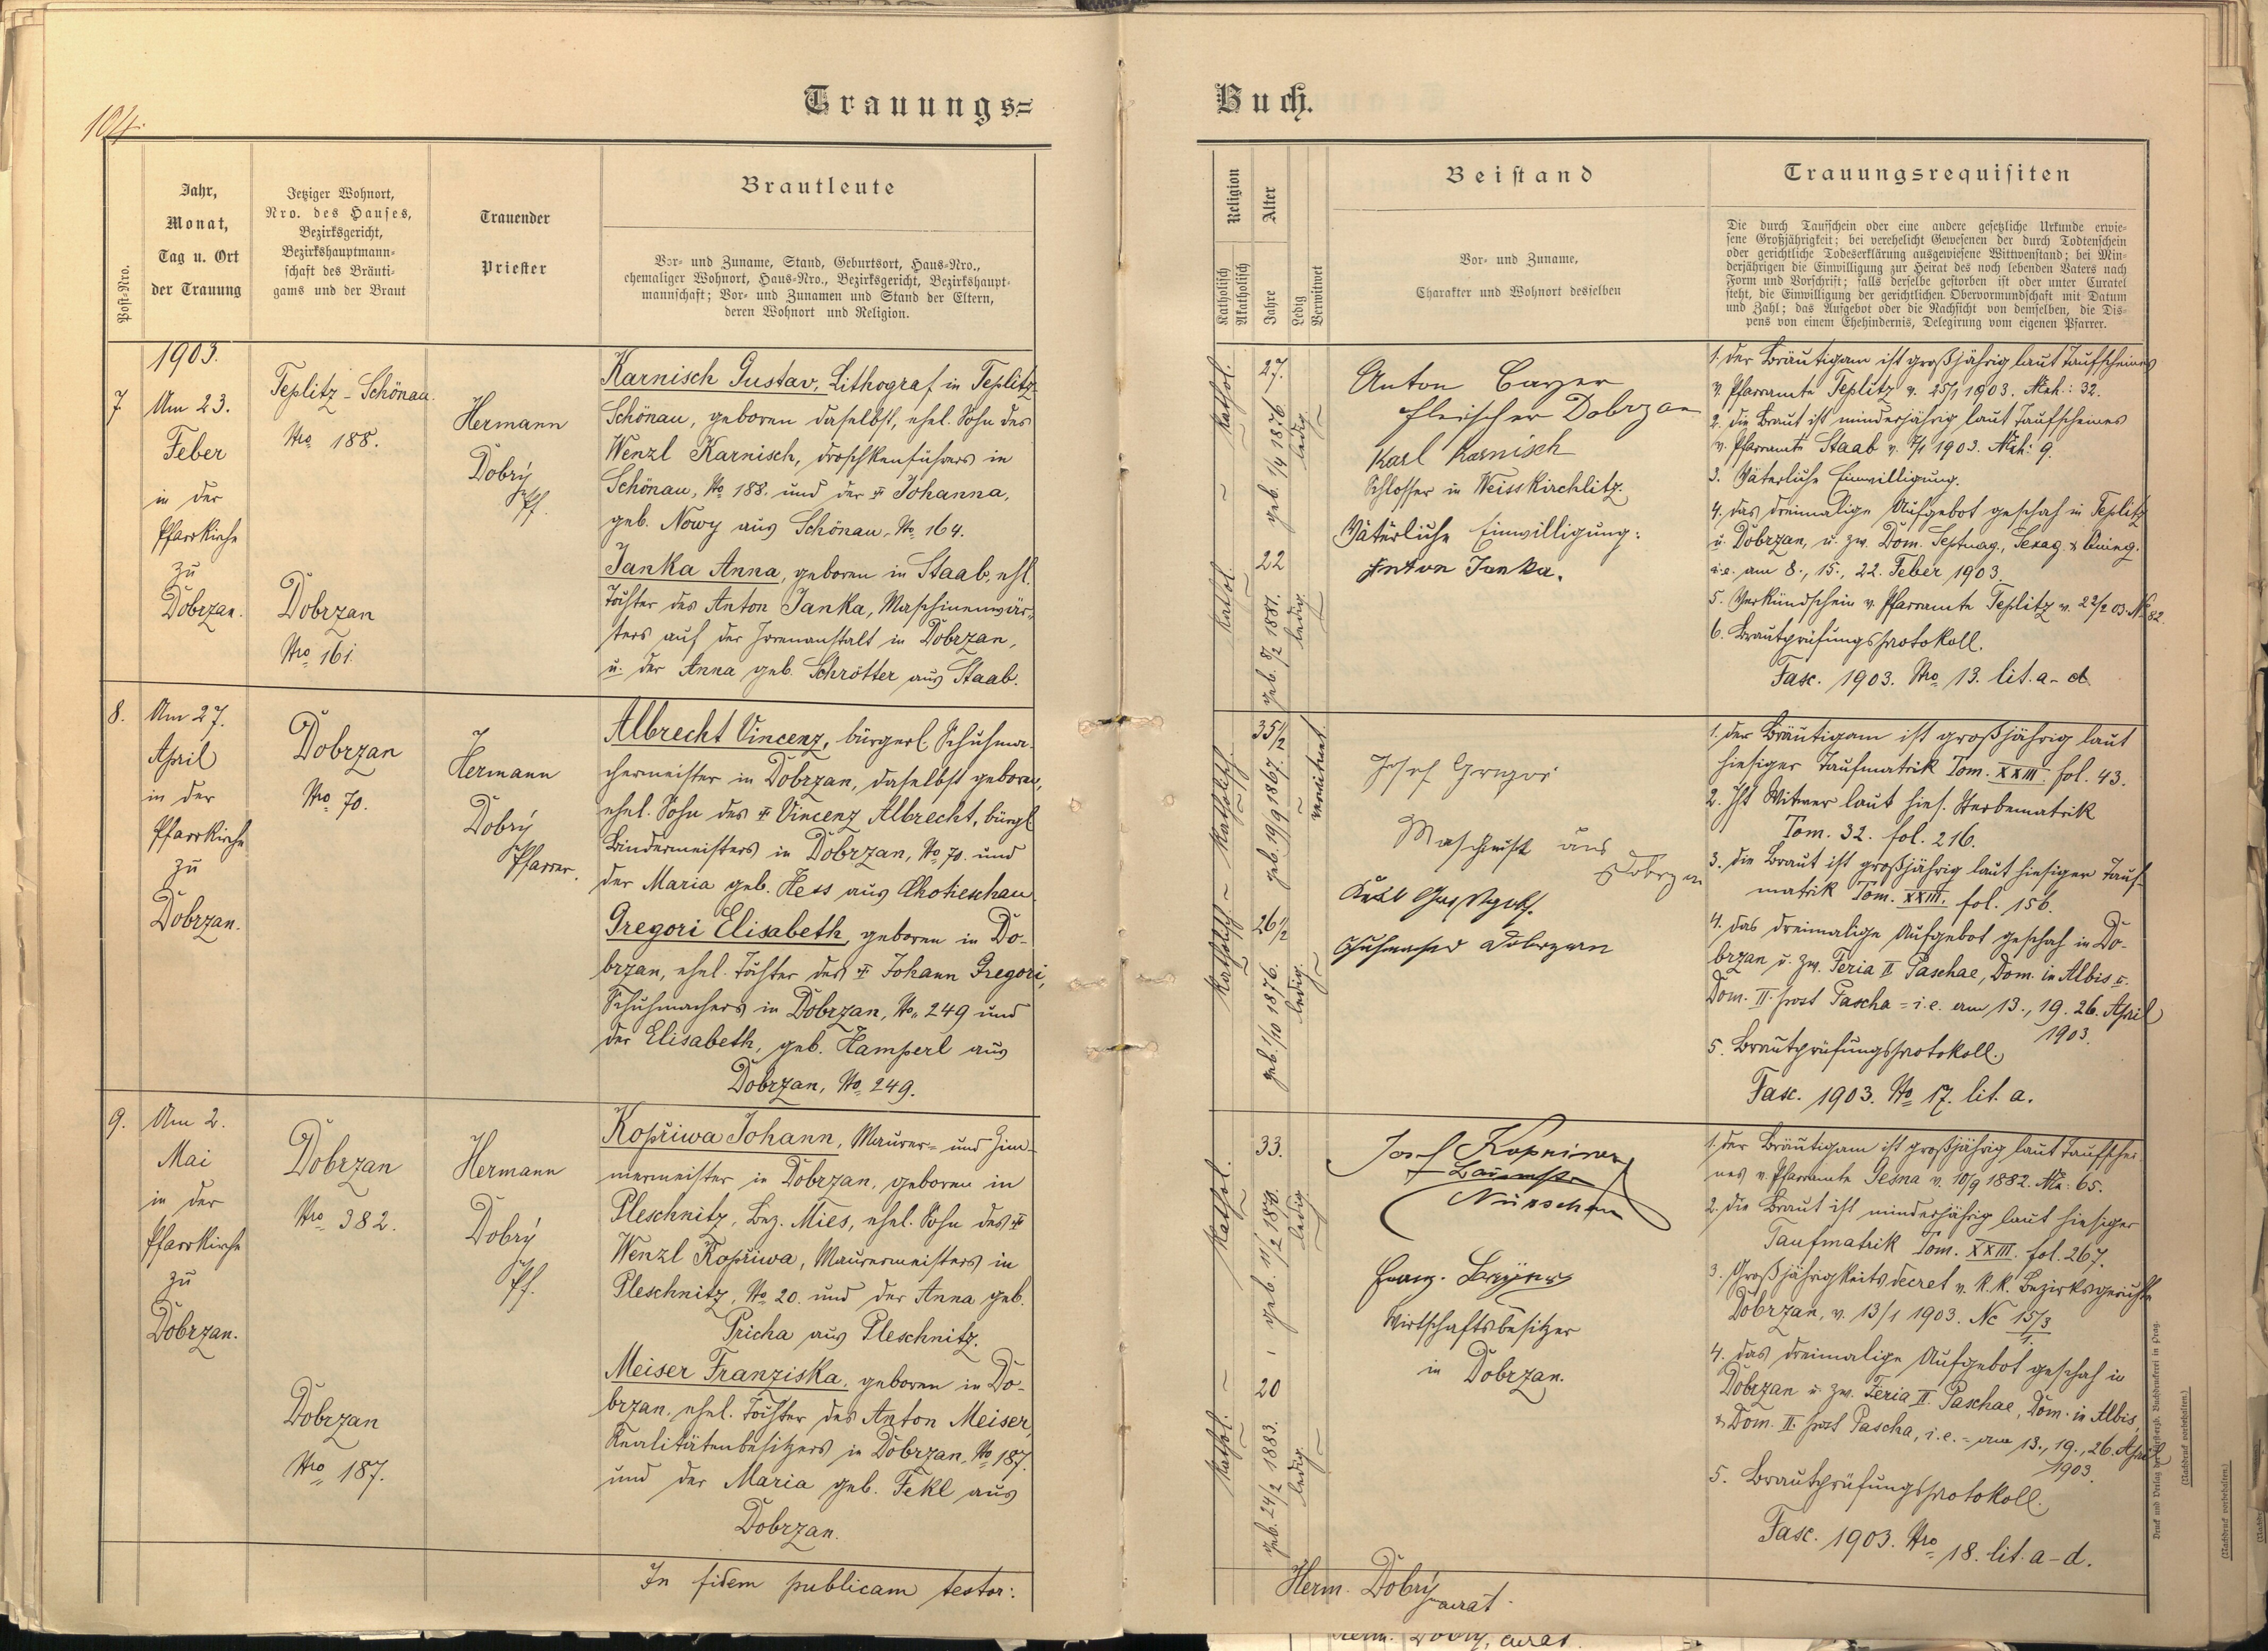 104.
Trauungs=
Post-Nro.
Jahr,
Monat,
Tag u. Ort
der Trauung
Jetziger Wohnort,
Nro. des Hauses,
Bezirksgericht,
Bezirkshauptmann-
schaft des Bräuti-
gams und der Braut
Trauender
Priester
Brautleute
Vor- und Zuname, Stand, Geburtsort, Haus-Nro.,
ehemaliger Wohnort, Haus-Nro., Bezirksgericht, Bezirkshaupt-
mannschaft; Vor- und Zunamen und Stand der Eltern,
deren Wohnort und Religion.
1903.
7.
Am 23.
Feber
in der
Pfarrkirche
zu
Dobrzan.
Teplitz-Schönau.
Nro 188.
Dobrzan
Nro 161.
Hermann
Dobrý
Pf.
Karnisch Gustav, Lithograf in Teplitz-
Schönau, geboren daselbst, ehel. Sohn des
Wenzl Karnisch, Droschkenführers in
Schönau, No 188. und der Johanna,
geb. Nowy aus Schönau, No 164.
Janka Anna, geboren in Staab, ehl.
Tochter des Anton Janka, Maschinenwär-
ters auf der Irrenanstalt in Dobrzan,
u. der Anna geb. Schrötter aus Staab.
8.
Am 27.
April
in der
Pfarrkirche
zu
Dobrzan.
Dobrzan
Nro 70.
Hermann
Dobrý
Pfarrer.
Albrecht Vincenz, bürgerl. Schuhma-
chermeister in Dobrzan, daselbst geboren,
ehel. Sohn des Vincenz Albrecht, bürgl.
Bindermeisters in Dobrzan, No 70. und
der Maria geb. Hess aus Chotieschau
Gregori Elisabeth, geboren in Do-
brzan, ehel. Tochter des Johann Gregori,
Schuhmachers in Dobrzan, No 249 und
der Elisabeth, geb. Hamperl aus
Dobrzan, No 249.
9.
Am 2.
Mai
in der
Pfarrkirche
zu
Dobrzan.
Dobrzan
Nro 382.
Dobrzan
Nro 187.
Hermann
Dobrý
Pf.
Kopřiwa Johann, Maurer- und Zim-
mermeister in Dobrzan, geboren in
Pleschnitz, Bez. Mies, ehel. Sohn des
Wenzl Kopřiwa, Maurermeisters in
Pleschnitz, No 20. und der Anna geb.
Pricha aus Pleschnitz.
Meiser Franziska, geboren in Do-
brzan, ehel. Tochter des Anton Meiser,
Realitätenbesitzers in Dobrzan, No 187.
und der Maria geb. Fekl aus
Dobrzan.
In fidem publicam testor:
Buch.
Religion
Katholisch
Akatholisch
Alter
Jahre
Ledig
Verwitwet
Beistand
Vor- und Zuname,
Charakter und Wohnort desselben
Trauungsrequisiten
Die durch Taufschein oder eine andere gesetzliche Urkunde erwie-
sene Großjährigkeit; bei verehelicht Gewesenen der durch Todtenschein
oder gerichtliche Todeserklärung ausgewiesene Wittwenstand; bei Min-
derjährigen die Einwilligung zur Heirat des noch lebenden Vaters nach
Form und Vorschrift; falls derselbe gestorben ist oder unter Curatel
steht, die Einwilligung der gerichtlichen Obervormundschaft mit Datum
und Zahl; das Aufgebot oder die Nachsicht von demselben, die Dis-
pens von einem Ehehindernis, Delegirung vom eigenen Pfarrer.
Kathol.
27.
geb. 1/4 1876.
ledig.
Kathol.
22
geb. 8/2 1881.
ledig.
Anton
Fleischer Dobrzan
Karl Karnisch
Schlosser in Weisskirchlitz.
Väterliche Einwilligung:
Anton Janka.
1. der Bräutigam ist großjährig laut Taufscheines
v. Pfarramte Teplitz v. 25/1 1903. Mth.: 32.
2. die Braut ist minderjährig laut Taufscheines
v. Pfarramte Staab v. 7/1 1903. Mth: 9.
3. Väterliche Einwilligung.
4. das dreimalige Aufgebot geschah in Teplitz
u. Dobrzan, u. zw. Dom. Septuag., Sexag. & Quinq.
i.e. am 8., 15., 22. Feber 1903.
5. Verkündschein v. Pfarramte Teplitz v. 22/2 03. No 82.
6. Brautprüfungsprotokoll.
Fasc. 1903. Nro 13. lit. a-d.
Katholisch
35 1/2
geb. 19/9 1867.
verwitwet.
Katholisch
26 1/2
geb. 1/10 1876.
ledig.
Josef Gregori
Maschinist aus
Dobrzan
Schuhmacher Dobrzan
1. der Bräutigam ist großjährig laut
hiesiger Taufmatrik Tom. XXIII. fol. 43.
2. Ist Witwer laut hies. Sterbematrik
Tom. 32. fol. 216.
3. die Braut ist großjährig laut hiesiger Tauf-
matrik Tom. XXIII. fol. 156.
4. das dreimalige Aufgebot geschah in Do-
brzan u. zw. Feria II Paschae, Dom. in Albis u.
Dom. II. post Pascha = i.e. am 13., 19. 26. April
1903.
5. Brautprüfungsprotokoll.
Fasc. 1903. No 17. lit. a.
Kathol.
33.
geb. 11/2 1870.
ledig
Kathol.
20
geb. 24/2 1883.
ledig.
Josef Kopriwa
Baumstr
Nürschan
Franz
Wirtschaftsbesitzer
in Dobrzan.
1. der Bräutigam ist großjährig laut Taufschei-
nes v. Pfarramte Gesna v. 10/9 1882. No: 65.
2. die Braut ist minderjährig laut hiesiger
Taufmatrik Tom. XXIII. fol. 267.
3. Großjährigkeitsdecret v. k.k. Bezirksgerichte
Dobrzan, v. 13/1 1903. Nc 15/3
1.
4. das dreimalige Aufgebot geschah in
Dobrzan u. zw. Feria II. Paschae, Dom. in Albis,
& Dom. II. post Pascha, i.e. = am 13., 19., 26. April
1903.
5. Brautprüfungsprotokoll.
Fasc. 1903. Nro 18. lit. a-d.
Herm. Dobrý
curat.
(Nachdruck vorbehalten.)
(Nachdruck vorbehalten.)
Herm. Dobrý, curat.